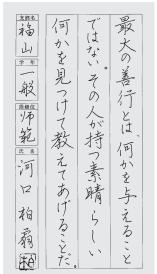 最大の善行とは、何かを与えること
ではない。その人が持つ素晴らしい
何かを見つけて教えてあげることだ。
支部名
福山
学年
一般
段級位
師範
氏名
河口 柏扇